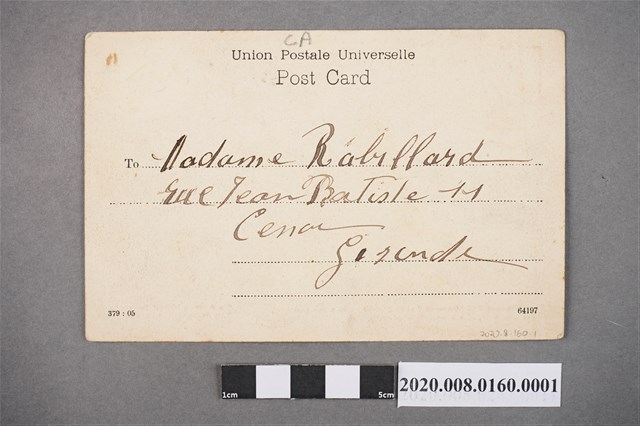 CA
Union Postale Universelle
Post Card
To Madame Rabillard
Rue Jean Batiste 11
Cenon
Gironde
379 : 05
64197
2020.8.160.1
1cm
5cm
2020.008.0160.0001